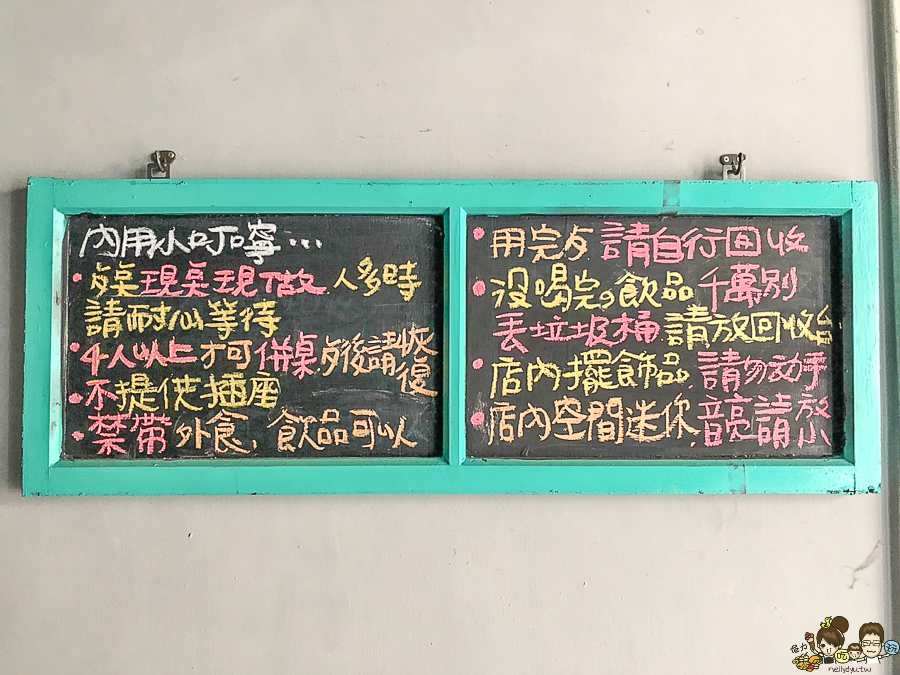 內用小叮嚀…
•桌現桌現做.人多時
請耐心等待
•4人以上才可併桌.後請恢復
•不提供插座
•禁帶外食,飲品可以
•用完 請自行回收
•沒喝完の飲品 千萬別
丟垃圾桶,請放回收台
•店內擺飾品,請勿动手
•店內空間迷你,音亮請放小
neillydyu.tw